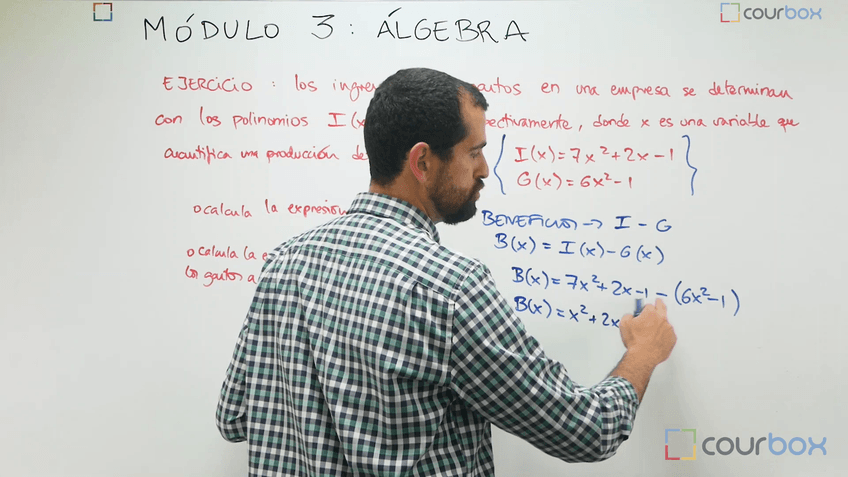 courbox
MÓDULO 3: ÁLGEBRA
EJERCICIO: los en una empresa se determinan
con los polinomios I(x donde x es una variable que
cuantifica una producción de
I(x)=7x²+2x-1
G(x)=6x²-1
calcula la
calcula la
los gastos a
BENEFICIOS → I-G
B(x)=I(x)-G(x)
B(x)=7x²+2x-1-(6x²-1)
B(x)=x²+2x
courbox